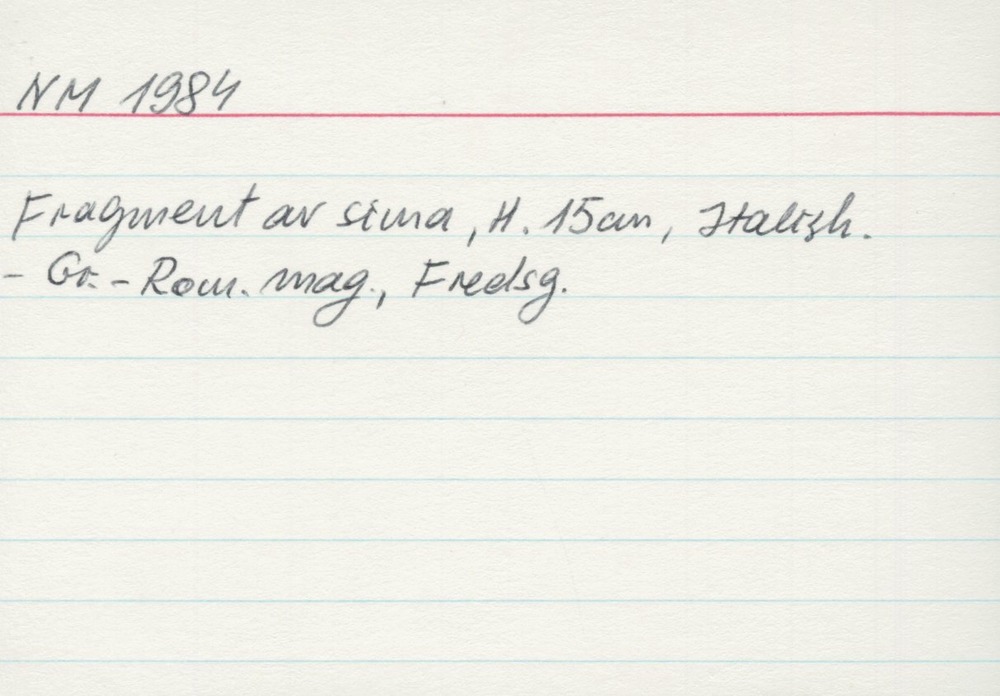 NM 1984
Fragment av sima, H. 15cm, Italisk.
- Gr.-Rom. mag., Fredsg.